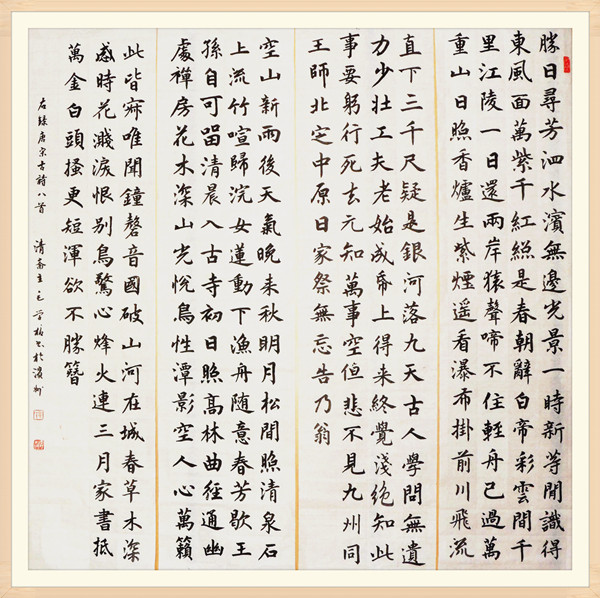 勝日尋芳泗水濱無邊光景一時新等閒識得
東風面萬紫千紅總是春朝辭白帝彩雲間千
里江陵一日還兩岸猿聲啼不住輕舟已過萬
重山日照香爐生紫煙遥看瀑布掛前川飛流
直下三千尺疑是銀河落九天古人學問無遺
力少壯工夫老始成帋上得来終覺淺絶知此
事要躬行死去元知萬事空但悲不見九州同
王師北定中原日家祭無忘告乃翁
空山新雨後天氣晚来秋明月松間照清泉石
上流竹喧歸浣女蓮動下漁舟随意春芳歇王
孫自可留清晨入古寺初日照高林曲徑通幽
處禪房花木深山光悅鳥性潭影空人心萬籟
此皆寂唯聞鐘磬音國破山河在城春草木深
感時花濺淚恨別鳥驚心烽火連三月家書抵
萬金白頭搔更短渾欲不勝簪
右錄唐宋古詩八首 清